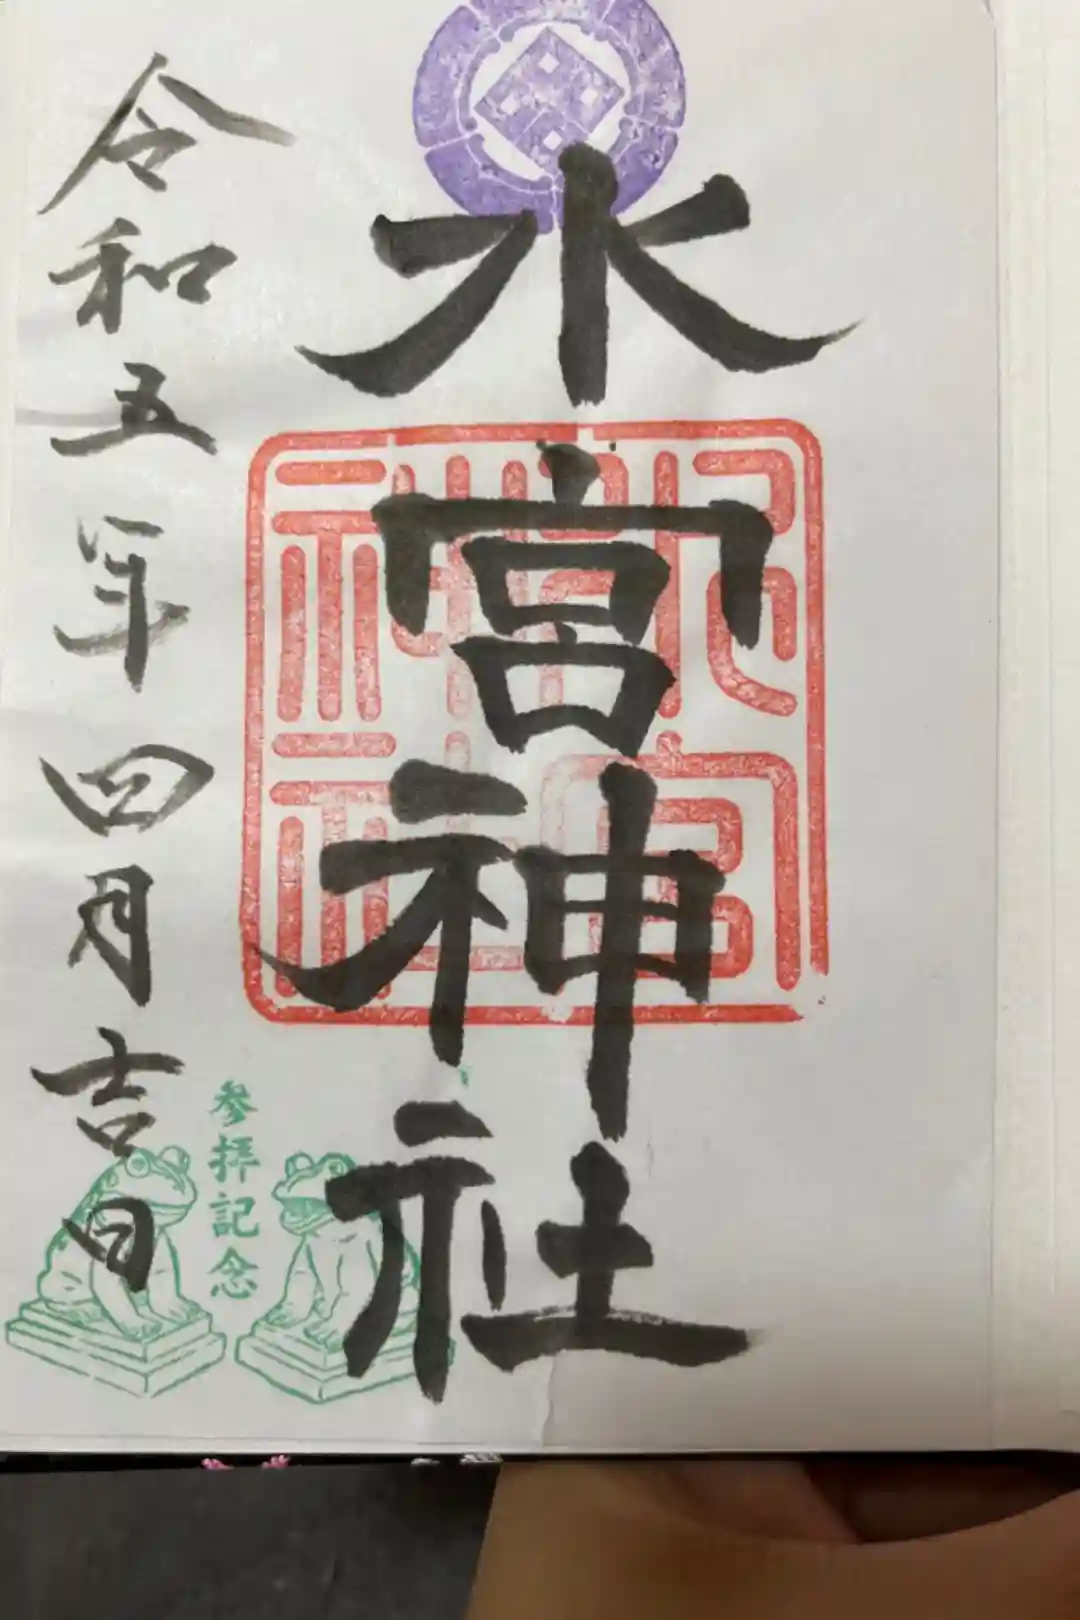 水宮神社
令和五年四月吉日
参拝記念
水宮神社